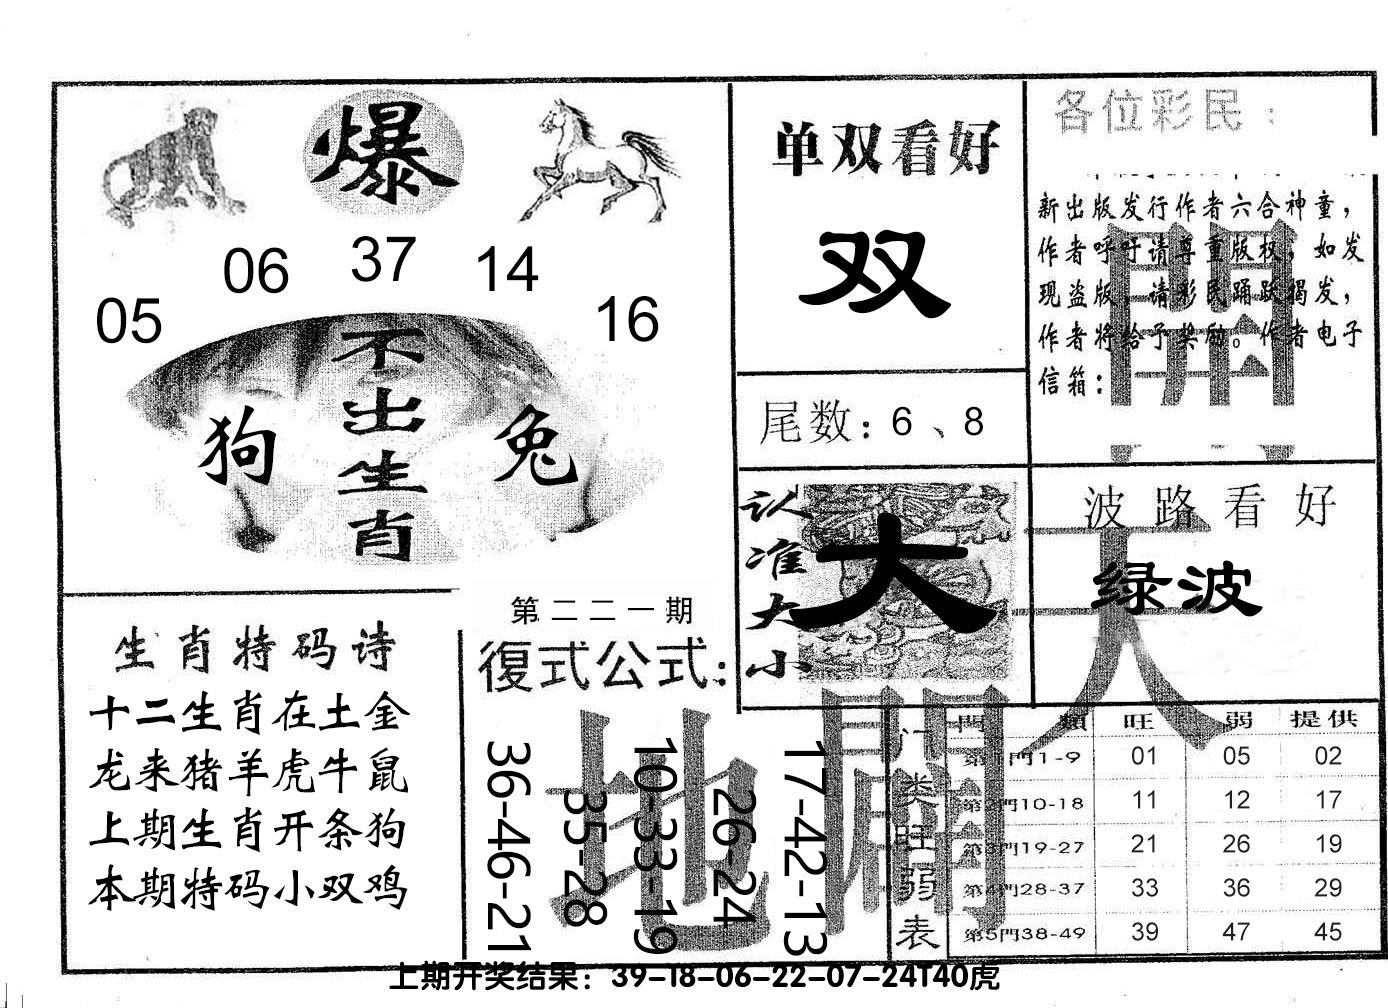 爆
06 37 14
05 16
不出生肖
狗 兔
单双看好
双
尾数：6、8
各位彩民：
新出版发行作者六合神童，
作者呼吁请尊重版权，如发
现盗版，请彩民踊跃揭发，
作者将给予奖励。作者电子
信箱：
認准大小
大
波路看好
绿波
天
開
地
闢
生肖特码诗
十二生肖在土金
龙来猪羊虎牛鼠
上期生肖开条狗
本期特码小双鸡
第二二一期
復式公式：
36-46-21
35-28
10-33-19
26-24
17-42-13
门类旺弱表
門類 旺 弱 提供
第1門1-9 01 05 02
第2門10-18 11 12 17
第3門19-27 21 26 19
第4門28-37 33 36 29
第5門38-49 39 47 45
上期开奖结果：39-18-06-22-07-24T40虎